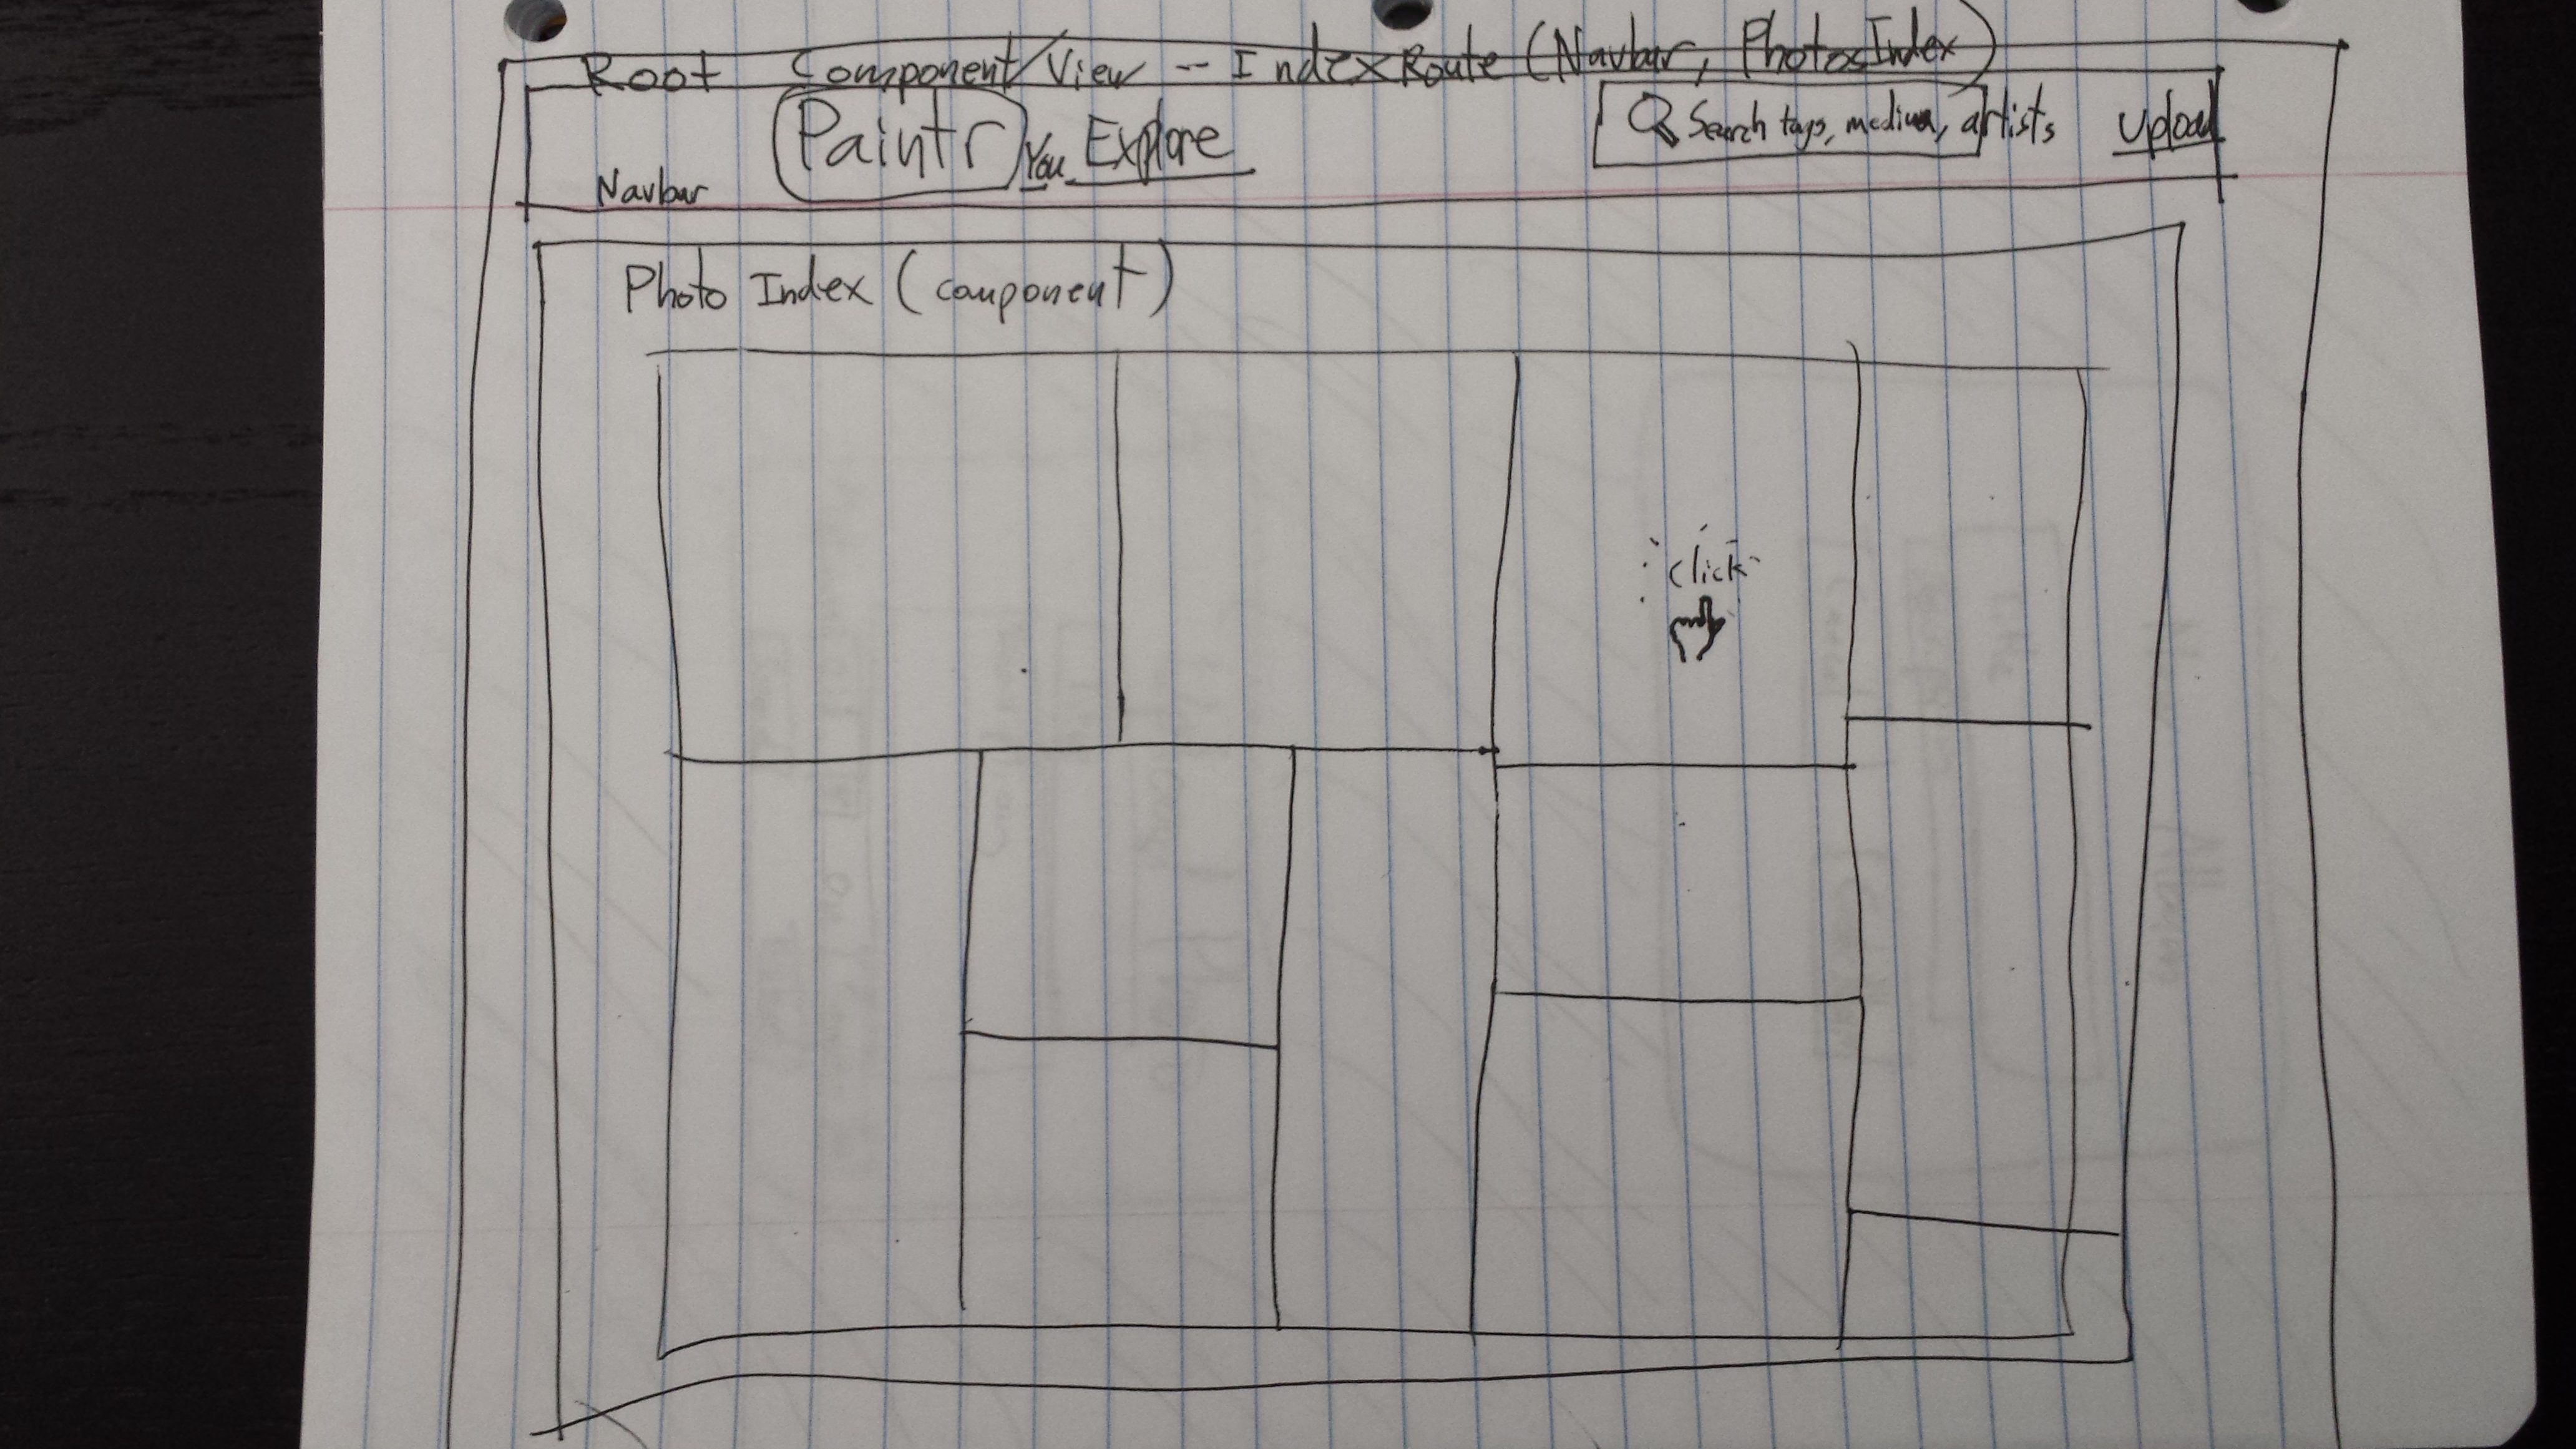 Root Component/View -- IndexRoute (Navbar, PhotosIndex)
Paintr You Explore Search tags, medium, artists Upload
Navbar
Photo Index (component)
click